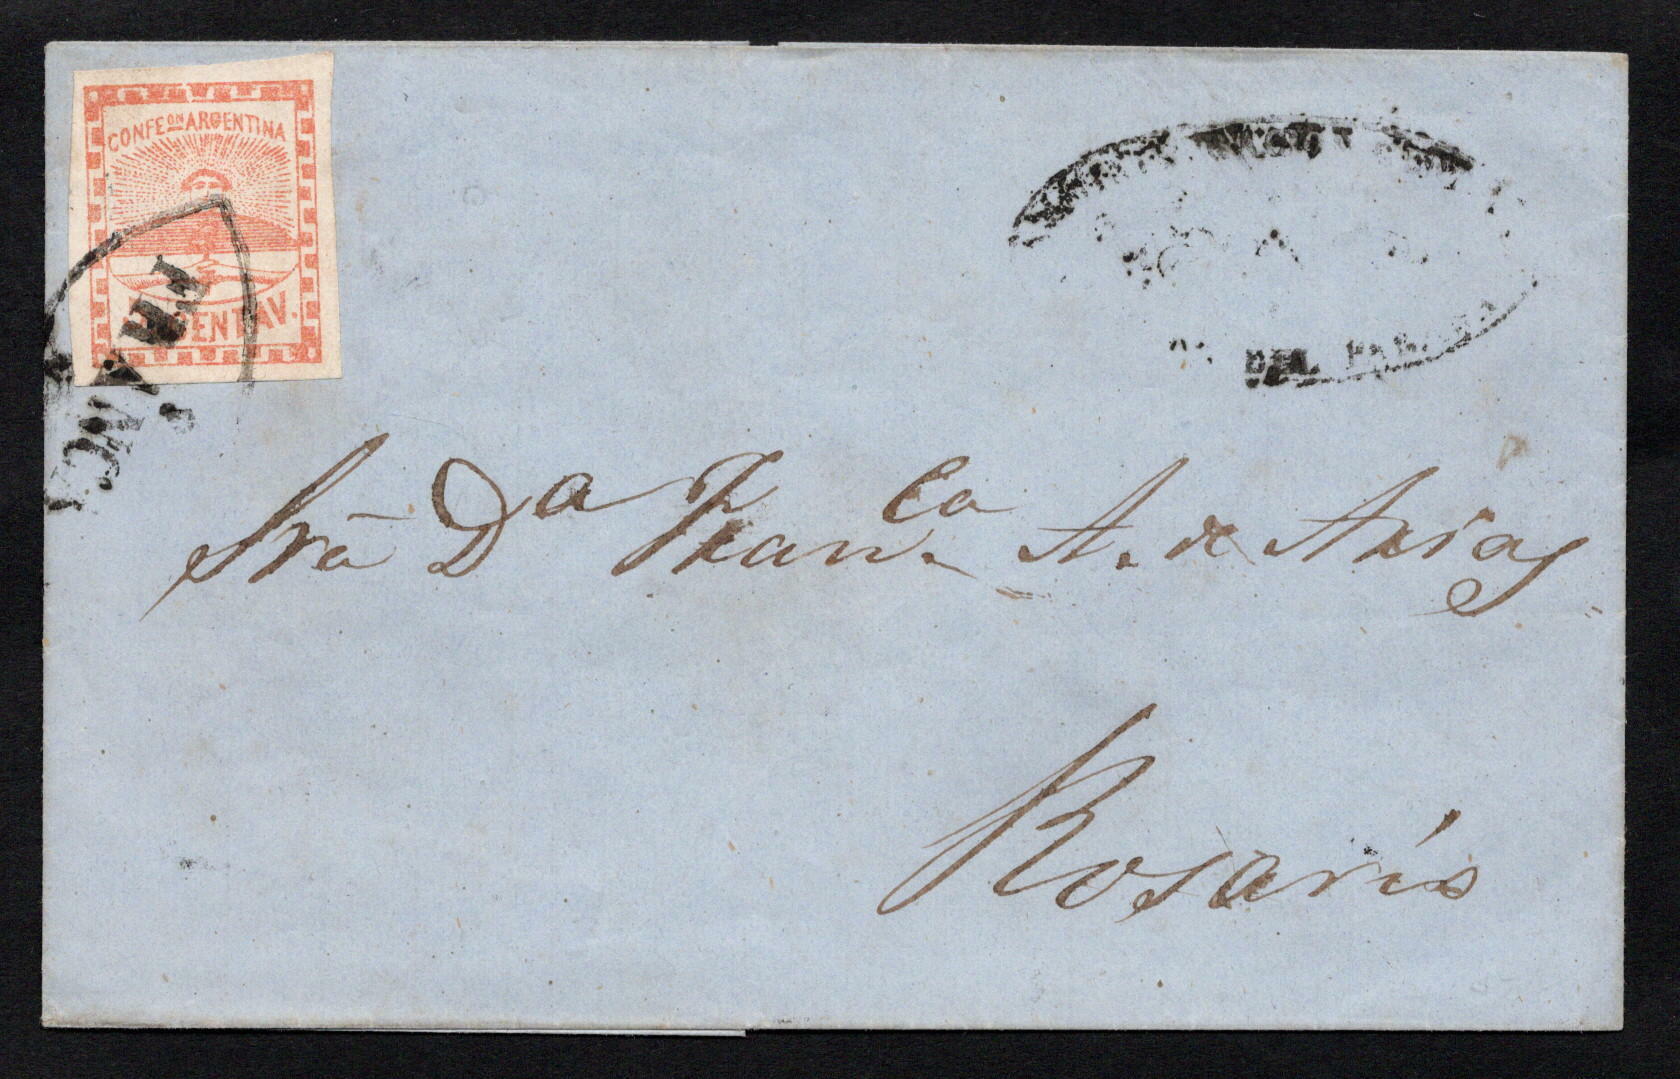 CONFEON ARGENTINA
CENTAV.
FRANCA
DEL PARANA
Sra Da Franca A. de Arias
Rosario